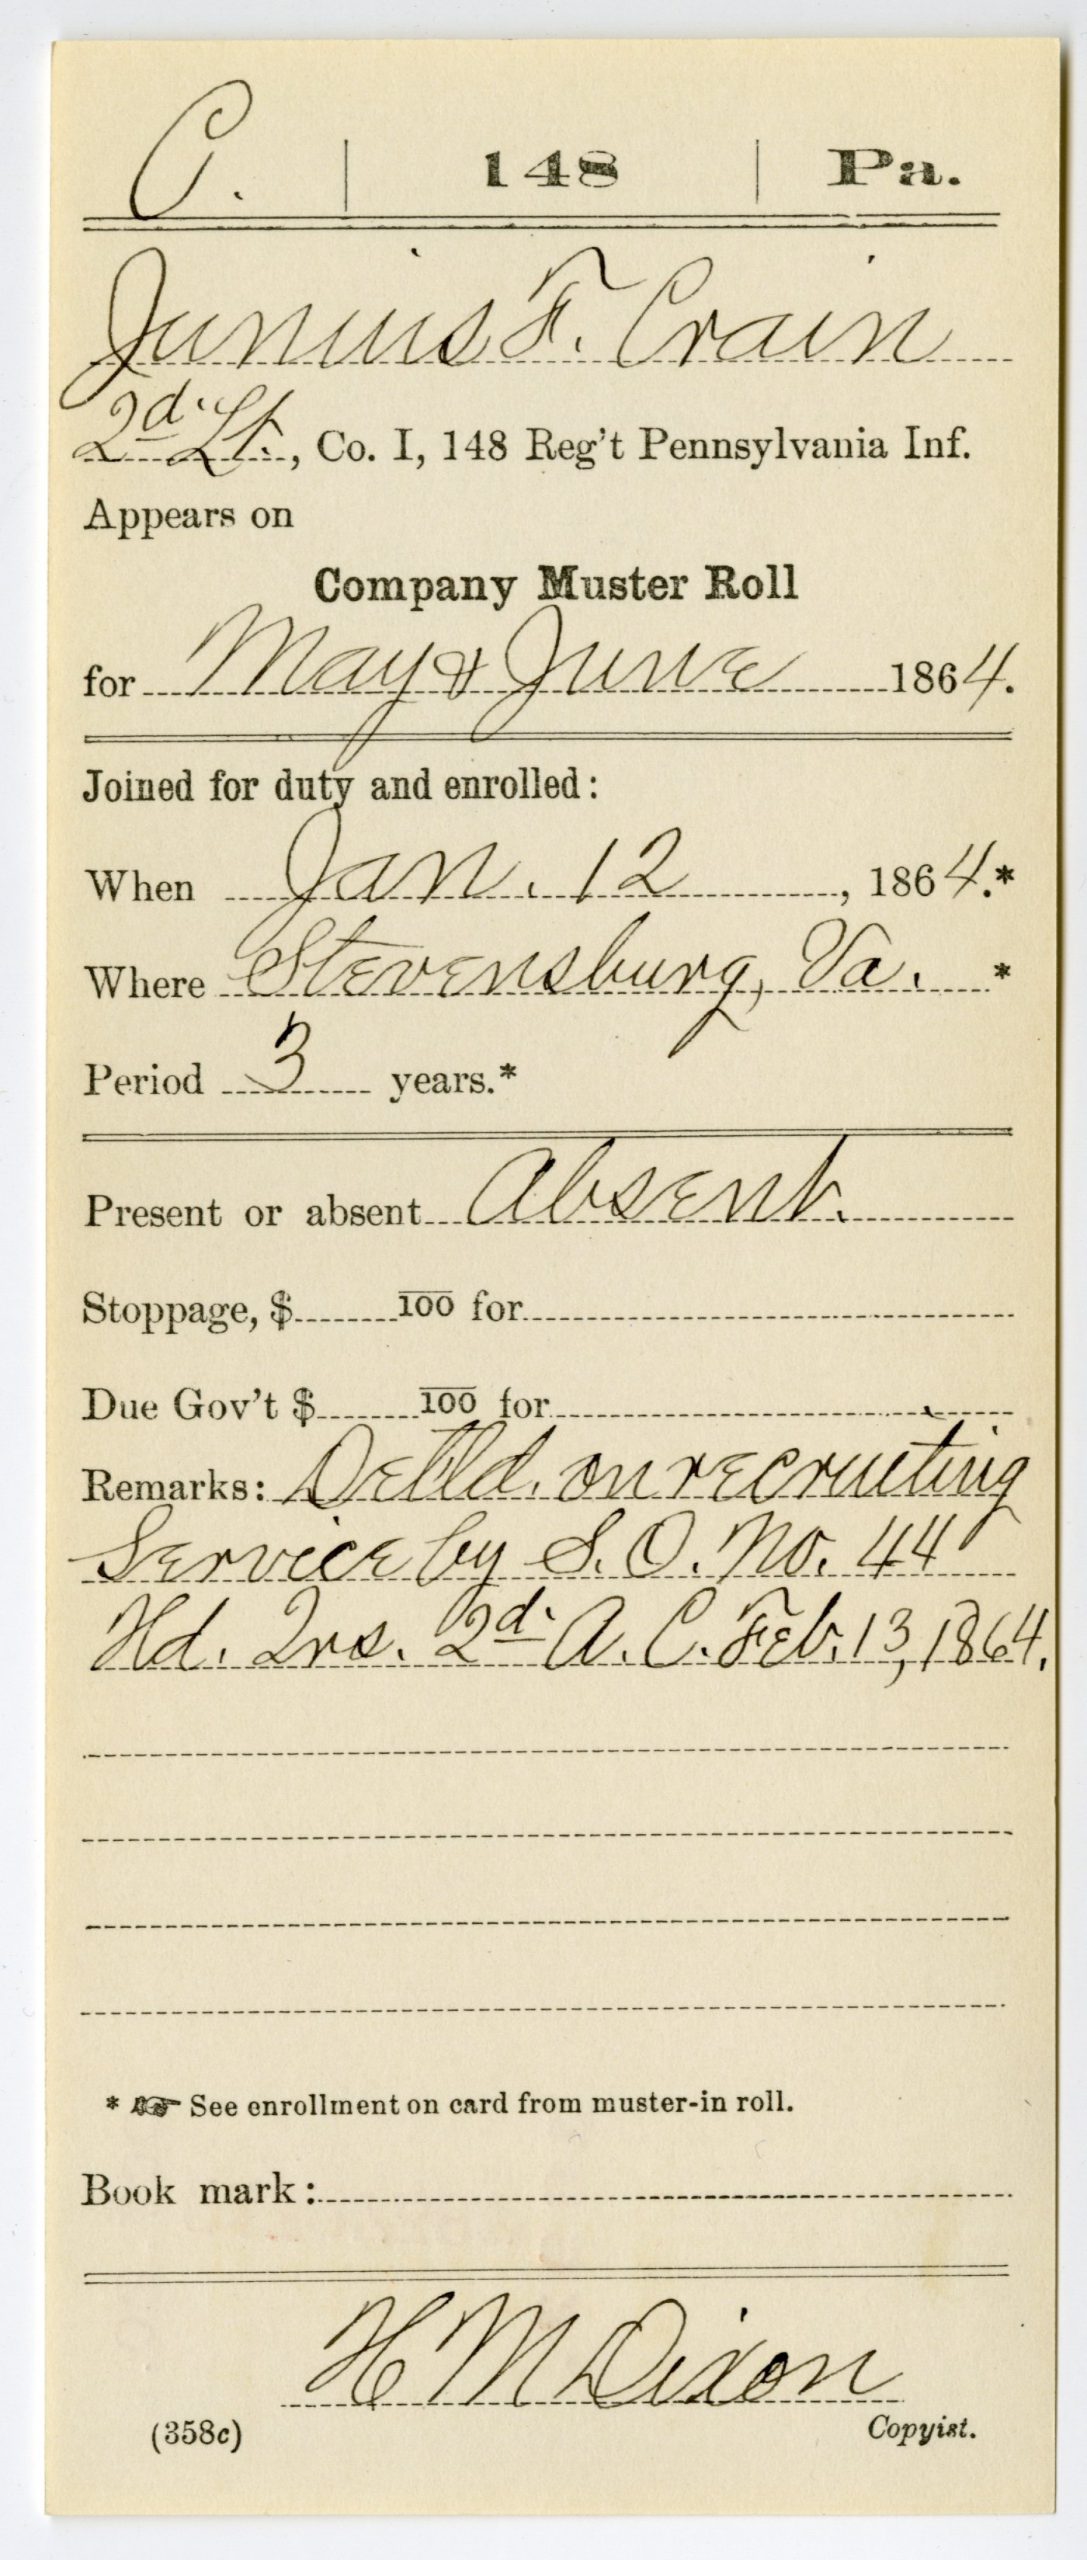 C. | 148 | Pa.
Junius F. Crain
2d. Lt., Co. I, 148 Reg't Pennsylvania Inf.
Appears on
Company Muster Roll
for May & June 1864.
Joined for duty and enrolled:
When Jan. 12, 1864.*
Where Stevensburg, Va. *
Period 3 years.*
Present or absent Absent.
Stoppage, $ 100 for
Due Gov't $ 100 for
Remarks: Detld. on recruiting
Service by S. O. No. 44
Hd. Qrs. 2d. A. C. Feb. 13, 1864.
* ☞ See enrollment on card from muster-in roll.
Book mark:
H M Dixon
(358c) Copyist.